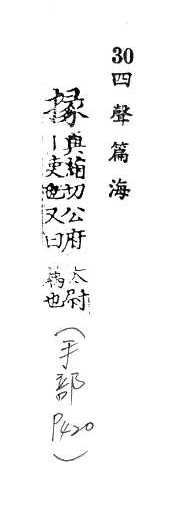 30四聲篇海
掾
與絹切公府
丨吏也又曰
太尉
也
(手部 P420)